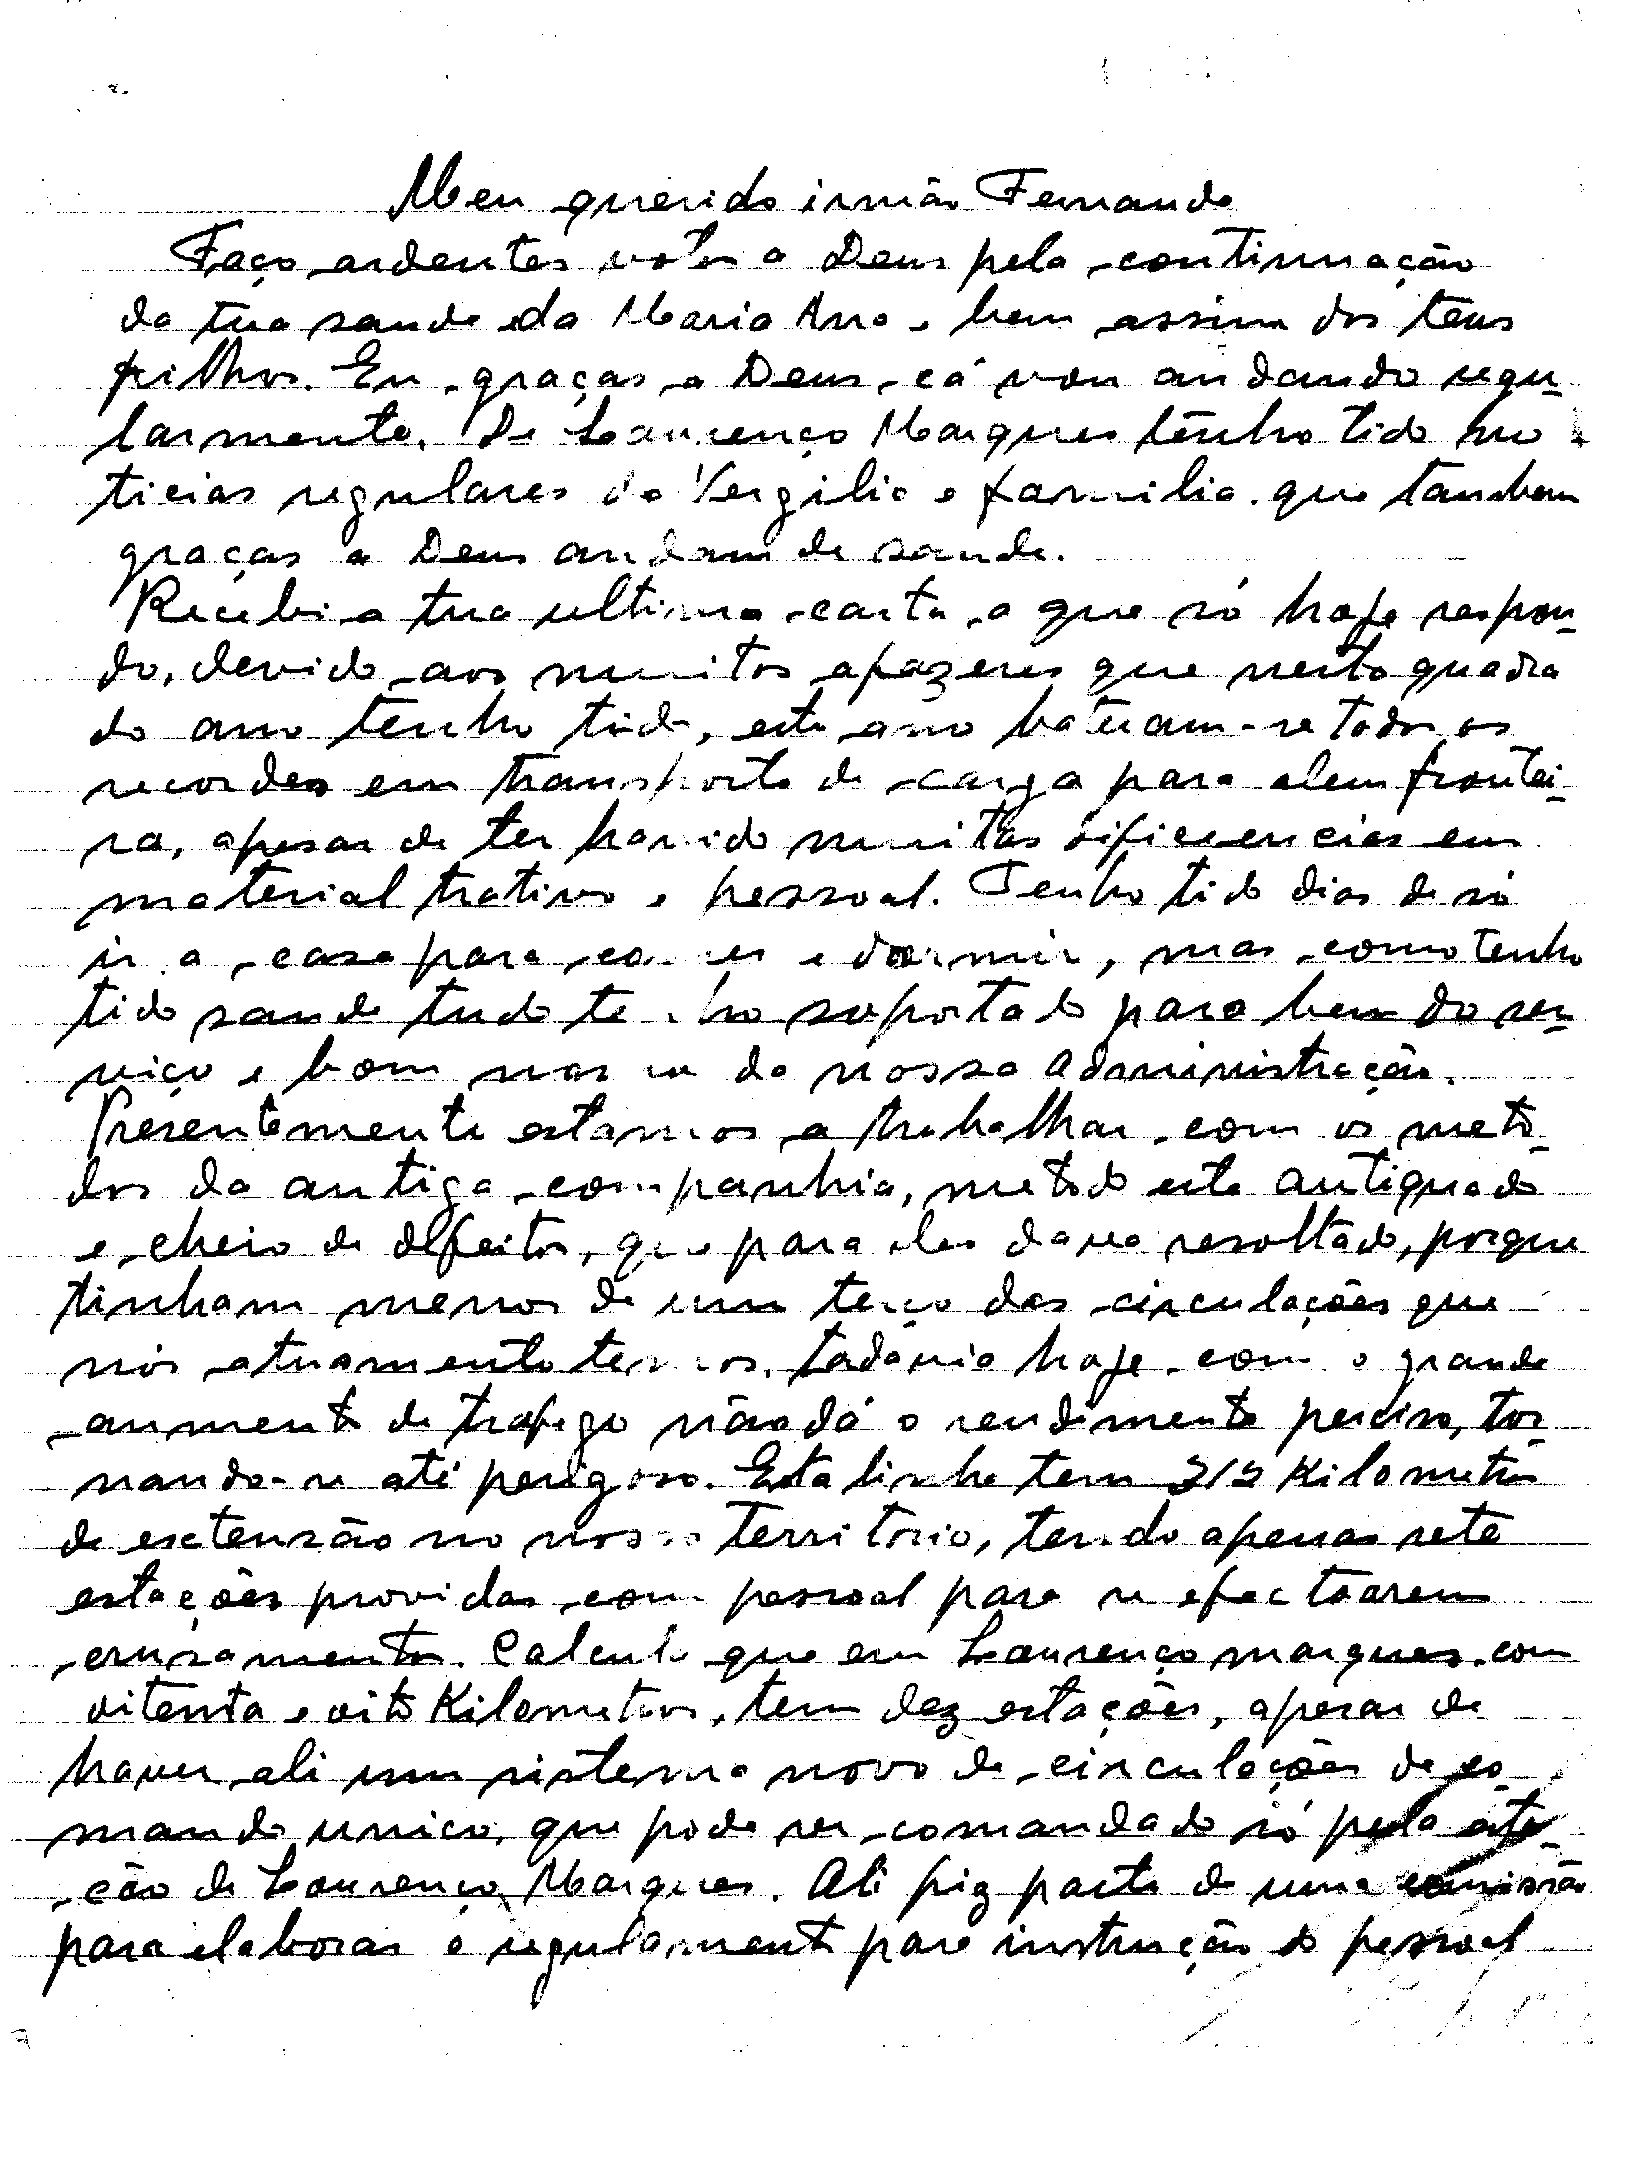 Meu querido irmão Fernando
Faço ardentes votos a Deus pela continuação
da tua saude da Maria Ana e bem assim dos teus
filhos. Eu graças a Deus cá vou andando regu-
larmente. De Lourenço Marques tênho tido no
ticias regulares do Vergilio e familia que tambem
graças a Deus andam de saude.
Recebi a tua ultima carta a que só hoje respon-
do, devido aos muitos afazeres que nesta quadra
do ano tênho tido, este ano bateram-se todos os
recordes em transporte de carga para alem frontei-
ra, apesar de ter havido muitas dificiencias em
material trativo e pessoal. Tenho tido dias de só
ir a casa para comer e dormir, mas como tenho
tido saude tudo tenho suportado para bem do ser-
viço e bom nome da nossa administração.
Presentemente estamos a trabalhar com os meto-
dos da antiga companhia, metodo este antiquado
e cheio de defeitos, que para eles dava resoltado, porque
tinham menos de um terço das circulações que
nós atuamente temos, todavia hoje com o grande
aumento de trafego não dá o rendimento perciso, tor-
nando-se até perigoso. Esta linha tem 315 Kilometros
de esctensão no nosso Territorio, tendo apenas sete
estações providas com pessoal para se efectoarem
crusamentos. Calcula que em Lourenço marques com
oitenta e oito Kilometros, tem dez estações, apesar de
haver ali um sistema novo de circulações de co-
mando unico, que pode ser comandado só pela esta-
ção de Lourenço Marques. Ali fiz parte de uma comissão
para elaborar o regulamento para instrução do pessoal